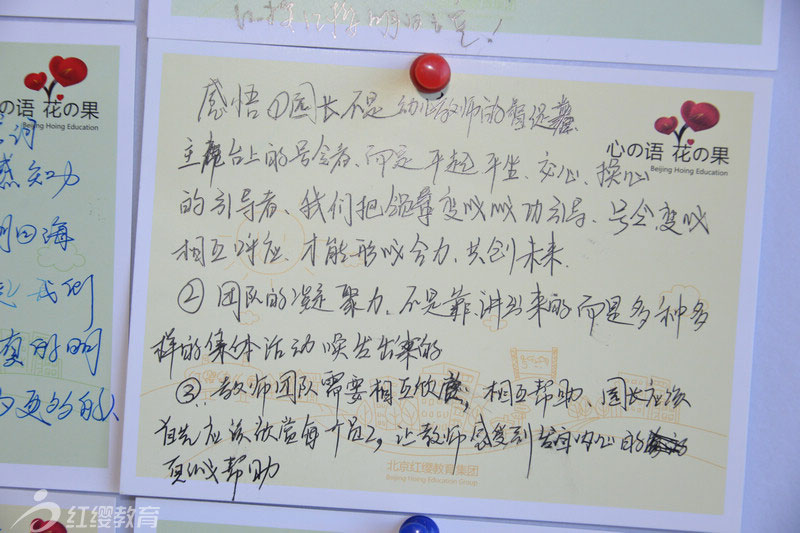 红樱红樱明日之星！
心の语 花の果
Beijing Hoing Education
感知力
四海
我们
感悟①园长不是幼儿教师的
主席台上的号令者、而是平起平坐、交心、操心
的引导者、我们把领导变成成功引导、号令变成
相互呼应、才能形成合力、共创未来.
②团队的凝聚力、不是靠讲出来的而是多种多
样的集体活动唤发出来的
③、教师团队需要相互欣赏；相互帮助、园长应该
首先应该欣赏每个员工，让教师感受到发自内心的
真诚帮助
心の语 花の果
Beijing Hoing Education
北京红缨教育集团
Beijing Hoing Education Group
红缨教育